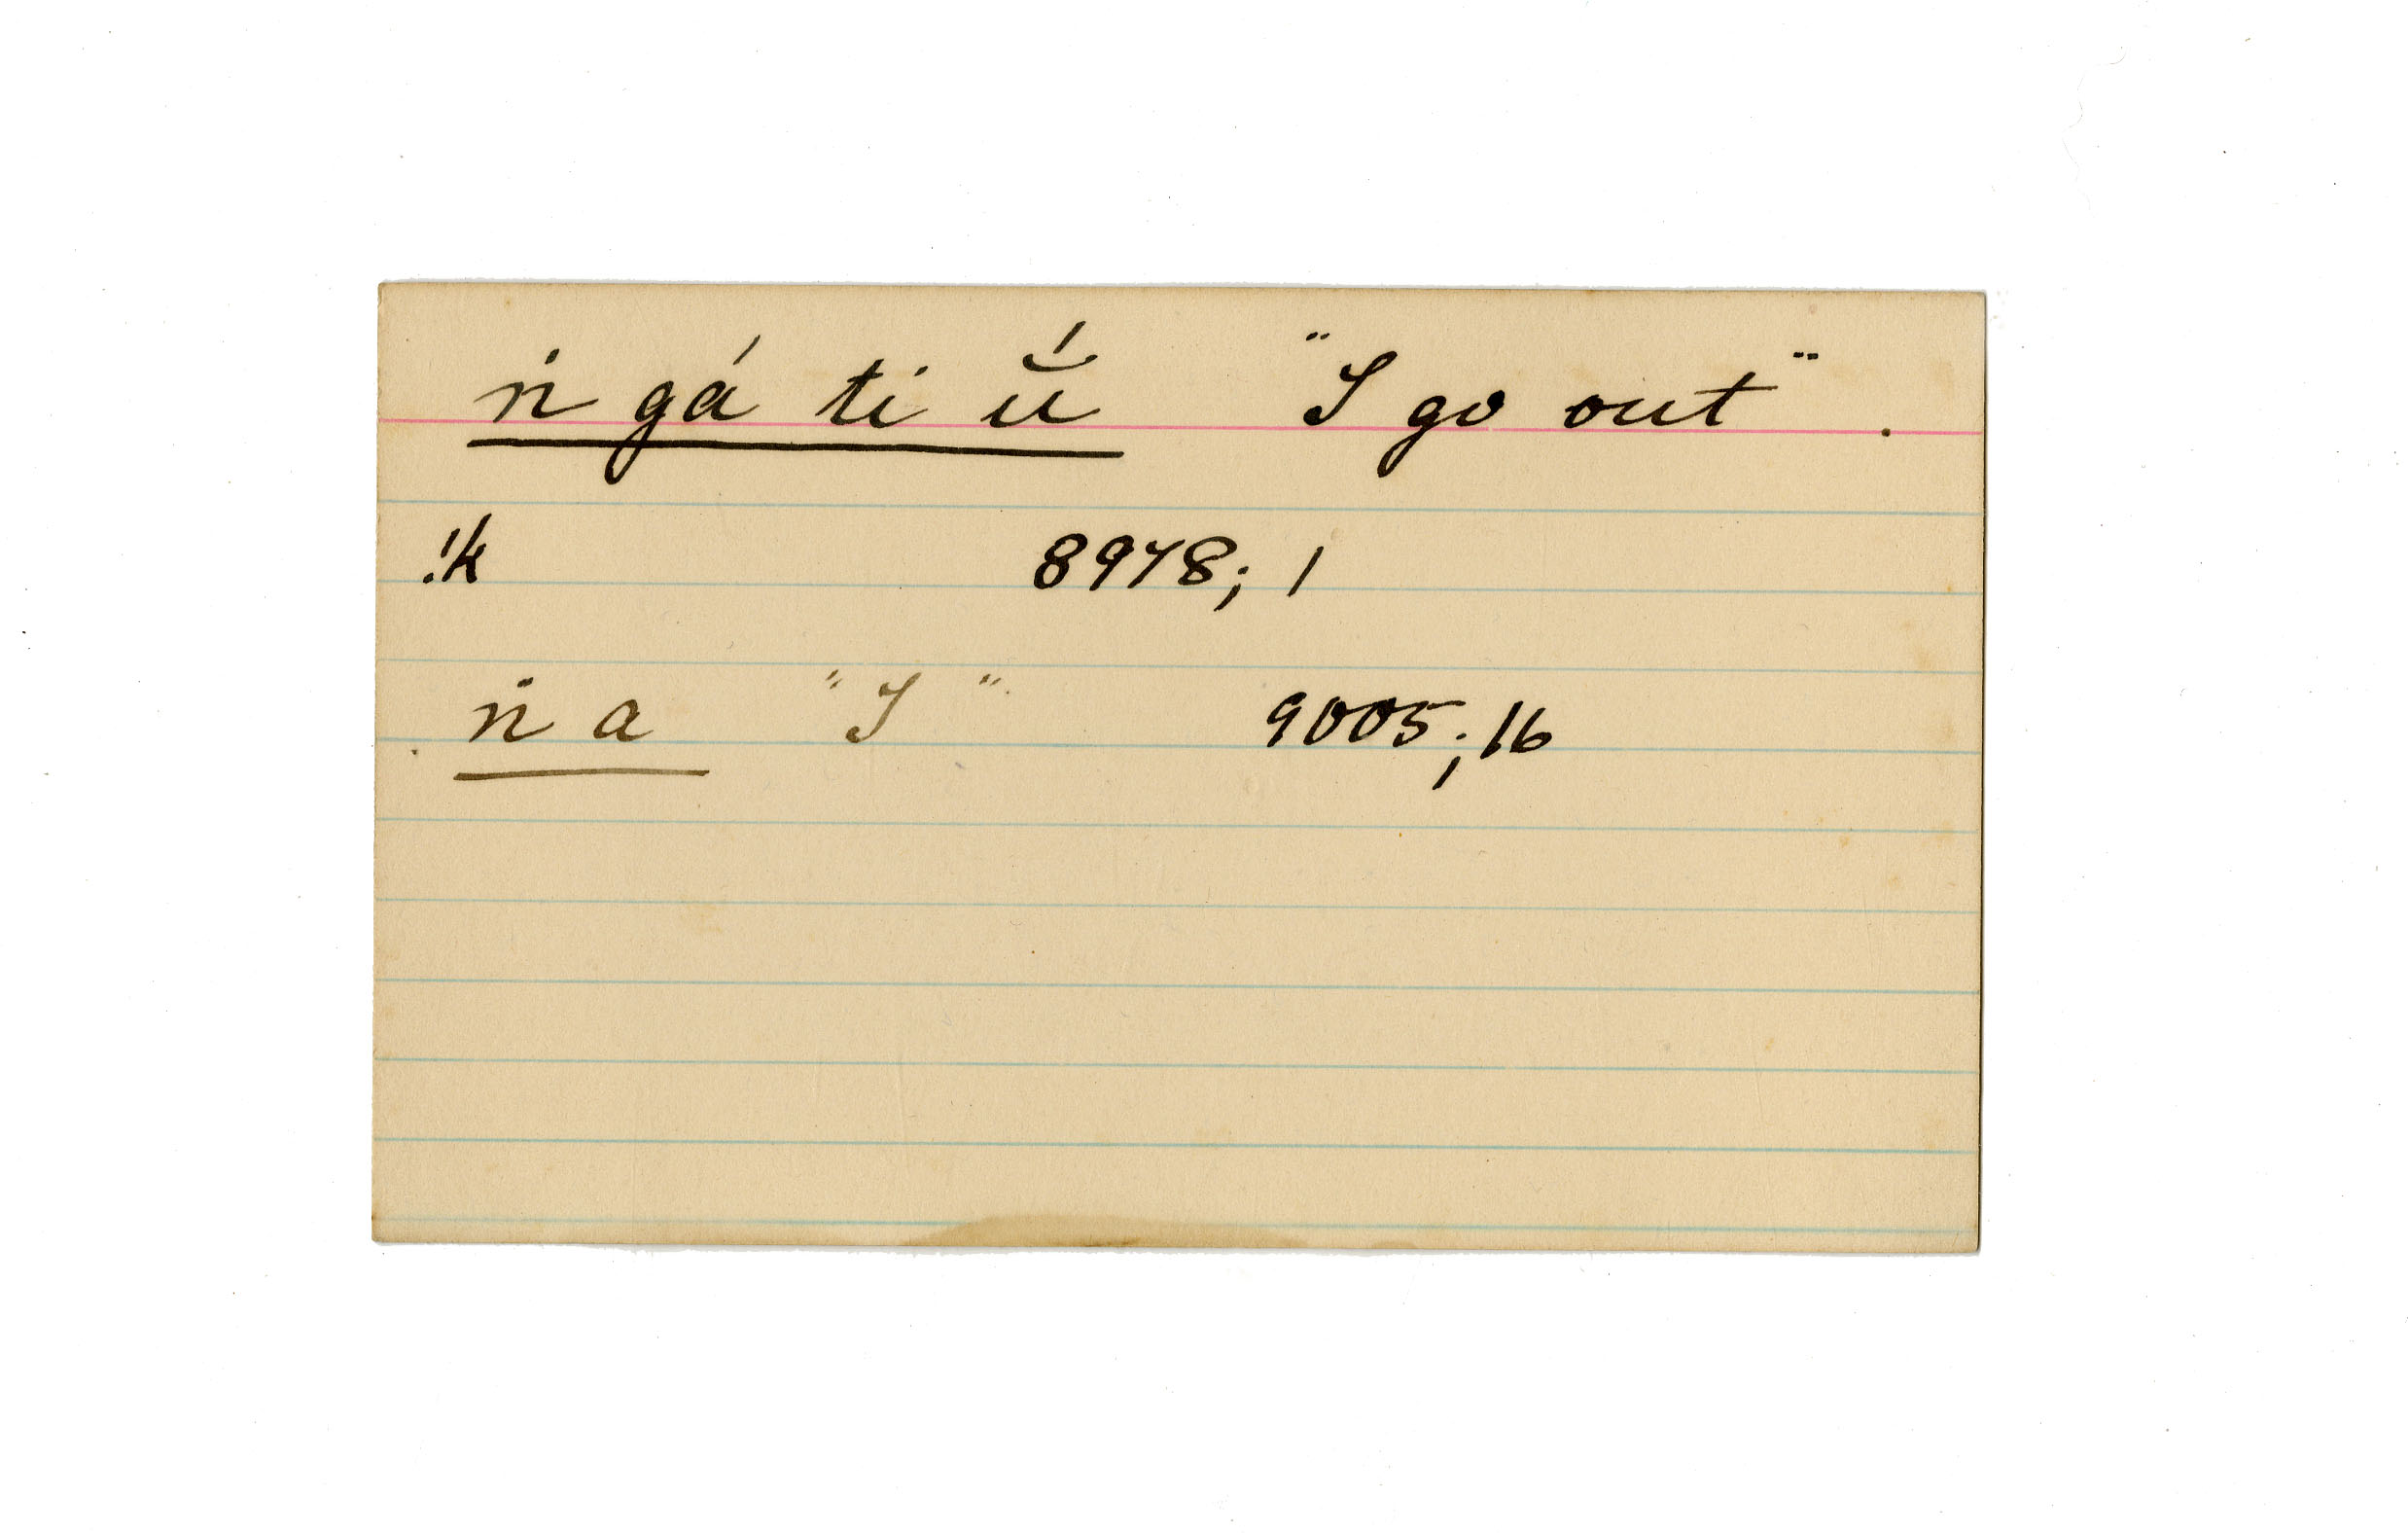 ṅ gá ti ŭ́ "I go out".
!k 8978; 1
ṅ a "I" 9005; 16